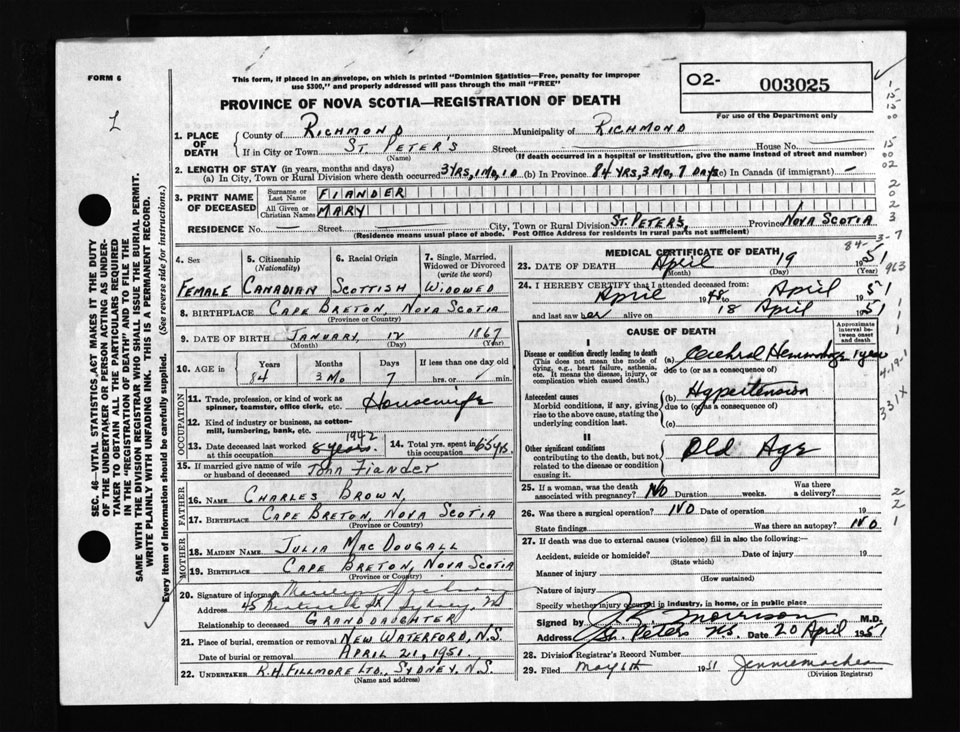 FORM 6
This form, if placed in an envelope, on which is printed "Dominion Statistics—Free, penalty for improper
use $300," and properly addressed will pass through the mail "FREE"
PROVINCE OF NOVA SCOTIA—REGISTRATION OF DEATH
O2- 003025
For use of the Department only
L
SEC. 46—VITAL STATISTICS ACT MAKES IT THE DUTY
OF THE UNDERTAKER OR PERSON ACTING AS UNDER-
TAKER TO OBTAIN ALL THE PARTICULARS REQUIRED
IN THE "REGISTRATION OF DEATH" AND TO FILE THE
SAME WITH THE DIVISION REGISTRAR WHO SHALL ISSUE THE BURIAL PERMIT.
WRITE PLAINLY WITH UNFADING INK. THIS IS A PERMANENT RECORD.
Every item of information should be carefully supplied. (See reverse side for instructions.)
1. PLACE OF DEATH County of RICHMOND Municipality of RICHMOND
If in City or Town ST. PETER'S Street House No.
(Name) (If death occurred in a hospital or institution, give the name instead of street and number)
2. LENGTH OF STAY (in years, months and days)
(a) In City, Town or Rural Division where death occurred 3 YRS, 1 MO, 1 D (b) In Province 84 YRS, 3 MO, 7 DAYS (c) In Canada (if immigrant) —
3. PRINT NAME OF DECEASED Surname or Last Name FIANDER
All Given or Christian Names MARY
RESIDENCE No. — Street City, Town or Rural Division ST. PETER'S, Province NOVA SCOTIA
(Residence means usual place of abode. Post Office Address for residents in rural parts not sufficient)
4. Sex FEMALE
5. Citizenship (Nationality) CANADIAN
6. Racial Origin SCOTTISH
7. Single, Married, Widowed or Divorced (write the word) WIDOWED
8. BIRTHPLACE CAPE BRETON, NOVA SCOTIA
(Province or Country)
9. DATE OF BIRTH JANUARY, 12 1867
(Month) (Day) (Year)
10. AGE in Years Months Days If less than one day old
84 3 MO 7 hrs. or min.
OCCUPATION
11. Trade, profession, or kind of work as
spinner, teamster, office clerk, etc. Housewife
12. Kind of industry or business, as cotton-
mill, lumbering, bank, etc.
13. Date deceased last worked at this occupation 1942 8 years.
14. Total yrs. spent in this occupation 65 yrs.
15. If married give name of wife
or husband of deceased John Fiander
FATHER
16. NAME CHARLES BROWN,
17. BIRTHPLACE CAPE BRETON, NOVA SCOTIA
(Province or Country)
MOTHER
18. MAIDEN NAME JULIA MACDOUGALL
19. BIRTHPLACE CAPE BRETON, NOVA SCOTIA
(Province or Country)
20. Signature of informant
Address 45 St Sydney, NS
Relationship to deceased GRANDDAUGHTER
21. Place of burial, cremation or removal NEW WATERFORD, N.S.
Date of burial or removal APRIL 21, 1951.
22. UNDERTAKER K.H. FILLMORE LTD., SYDNEY, N.S.
(Name and address)
MEDICAL CERTIFICATE OF DEATH
84-3-7
23. DATE OF DEATH April 19 1951
(Month) (Day) (Year)
24. I HEREBY CERTIFY that I attended deceased from:
April 1948 to April 1951
and last saw her alive on 18 April 1951
CAUSE OF DEATH
Approximate interval between onset and death
I
Disease or condition directly leading to death
(This does not mean the mode of
dying, e.g., heart failure, asthenia,
etc. It means the disease, injury, or
complication which caused death.)
(a) Cerebral Hemorrhage 1 year
due to (or as a consequence of)
Antecedent causes
Morbid conditions, if any, giving
rise to the above cause, stating the
underlying condition last.
(b) Hypertension
due to (or as a consequence of)
(c)
II
Other significant conditions
contributing to the death, but not
related to the disease or condition
causing it.
Old Age
25. If a woman, was the death
associated with pregnancy? NO Duration weeks. Was there a delivery?
26. Was there a surgical operation? NO Date of operation 19
State findings Was there an autopsy? NO
27. If death was due to external causes (violence) fill in also the following:—
Accident, suicide or homicide? Date of injury 19
(State which)
Manner of injury
(How sustained)
Nature of injury
Specify whether injury occurred in industry, in home, or in public place
Signed by Morrison M.D.
Address St. Peters NS. Date 20 April 1951
28. Division Registrar's Record Number
29. Filed May 6th 1951
(Division Registrar)
963
4-19-1
331X